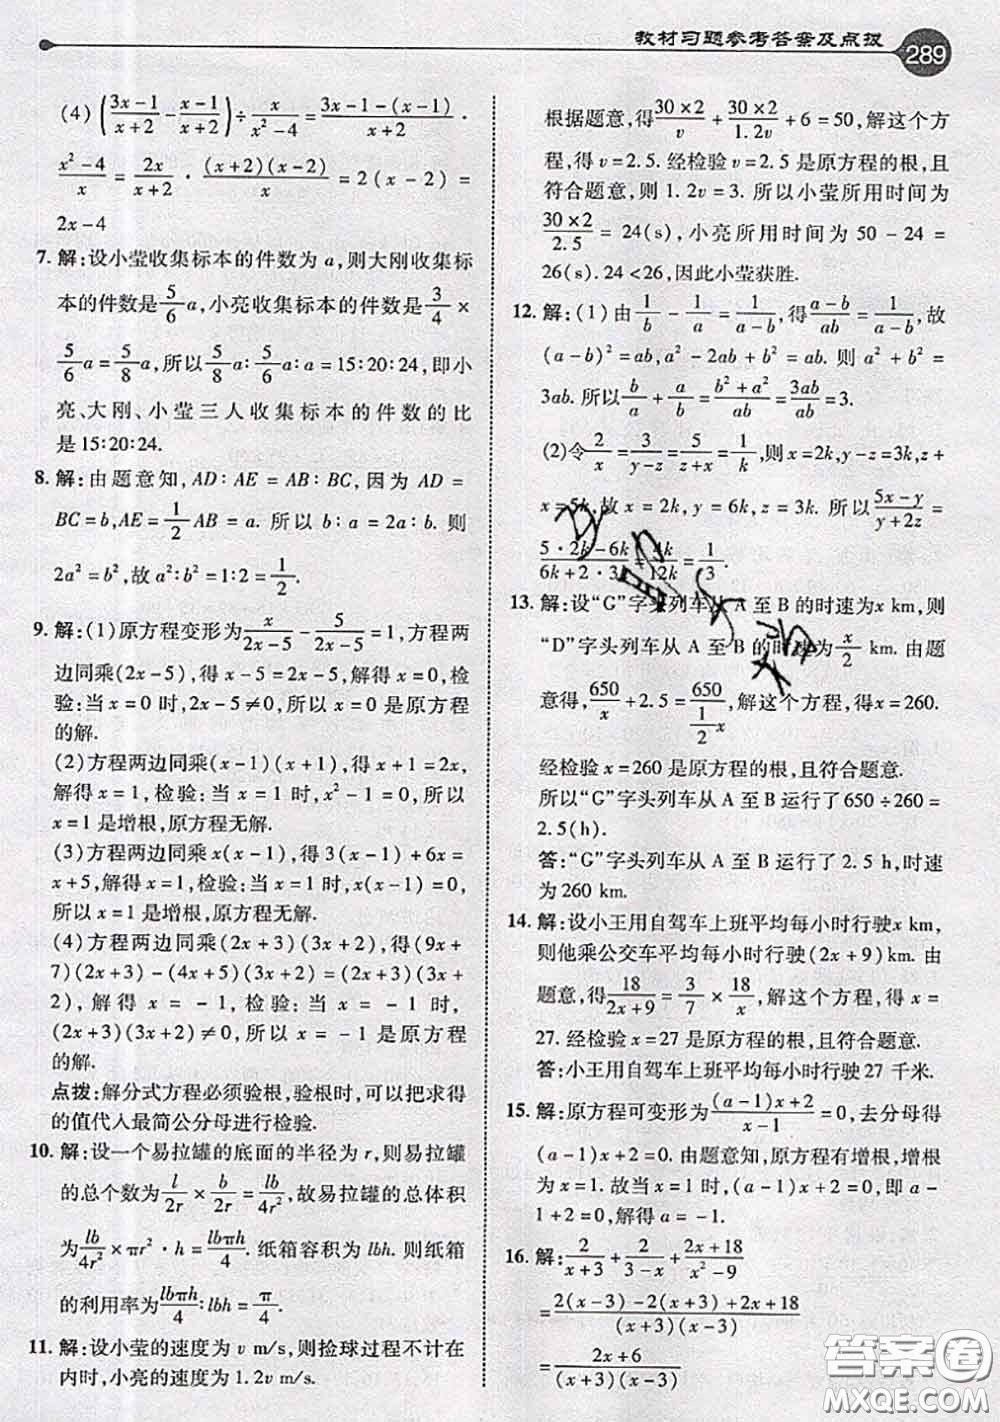 教材习题参考答案及点拨 289
(4) ((3x-1)/(x+2) - (x-1)/(x+2)) ÷ x/(x²-4) = (3x-1-(x-1))/(x+2) ·
(x²-4)/x = 2x/(x+2) · ((x+2)(x-2))/x = 2(x-2) =
2x-4
7. 解:设小莹收集标本的件数为 a,则大刚收集标
本的件数是 5/6 a,小亮收集标本的件数是 3/4 ×
5/6 a = 5/8 a,所以 5/8 a∶5/6 a∶a=15∶20∶24,即小
亮、大刚、小莹三人收集标本的件数的比
是 15∶20∶24.
8. 解:由题意知,AD∶AE=AB∶BC,因为 AD=
BC=b,AE=1/2 AB=a. 所以 b∶a=2a∶b. 则
2a²=b²,故 a²∶b²=1∶2=1/2.
9. 解:(1)原方程变形为 x/(2x-5) - 5/(2x-5) =1,方程两
边同乘(2x-5),得 x-5=2x-5. 解得 x=0,检
验:当 x=0 时,2x-5≠0,所以 x=0 是原方程
的解.
(2)方程两边同乘(x-1)(x+1),得 x+1=2.
解得 x=1,检验:当 x=1 时,x²-1=0,所以
x=1 是增根,原方程无解.
(3)方程两边同乘 x(x-1),得 3(x-1)+6x=
x+5,解得 x=1,检验:当 x=1 时,x(x-1)=0,
所以 x=1 是增根,原方程无解.
(4)方程两边同乘(2x+3)(3x+2),得(9x+
7)(2x+3)-(4x+5)(3x+2)=(2x+3)(3x+
2),解得 x=-1,检验:当 x=-1 时,
(2x+3)(3x+2)≠0,所以 x=-1 是原方程
的解.
点拨:解分式方程必须验根,验根时,可以把求得
的值代入最简公分母进行检验.
10. 解:设一个易拉罐的底面的半径为 r,则易拉罐
的总个数为 l/2r × b/2r = lb/4r². 故易拉罐的总体积
为 lb/4r² ×πr²·h = lbπh/4. 纸箱容积为 lbh. 则纸箱
的利用率为 lbπh/4∶lbh=π/4.
11. 解:设小莹的速度为 v m/s,则捡球过程不计在
内时,小亮的速度为 1.2v m/s.
根据题意,得 (30×2)/v + (30×2)/1.2v +6=50,解这个方
程,得 v=2.5. 经检验 v=2.5 是原方程的根,且
符合题意,则 1.2v=3. 所以小莹所用时间为
(30×2)/2.5 =24(s),小亮所用时间为 50-24=
26(s). 24<26,因此小莹获胜.
12. 解:(1)由 1/b - 1/a = 1/(a-b),得 (a-b)/ab = 1/(a-b),故
(a-b)²=ab,a²-2ab+b²=ab. 则 a²+b²=
3ab. 所以 b/a + a/b = (b²+a²)/ab = 3ab/ab =3.
(2)令 2/x = 3/(y-z) = 5/(z+x) = 1/k,则 x=2k,y-z=3k,z+
x=5k. 故 x=2k,y=6k,z=3k. 所以 (5x-y)/(y+2z) =
(5·2k-6k)/(6k+2·3k) = 4k/12k = 1/3.
13. 解:设“G”字头列车从 A 至 B 的时速为 x km,则
“D”字头列车从 A 至 B 的时速为 x/2 km. 由题
意得,650/x +2.5= 650/(1/2 x),解这个方程,得 x=260.
经检验 x=260 是原方程的根,且符合题意.
所以“G”字头列车从 A 至 B 运行了 650÷260=
2.5(h).
答:“G”字头列车从 A 至 B 运行了 2.5 h,时速
为 260 km.
14. 解:设小王用自驾车上班平均每小时行驶 x km,
则他乘公交车平均每小时行驶(2x+9) km. 由
题意,得 18/(2x+9) = 3/7 × 18/x,解这个方程,得 x=
27. 经检验 x=27 是原方程的根,且符合题意.
答:小王用自驾车上班平均每小时行驶 27 千米.
15. 解:原方程可变形为 ((a-1)x+2)/(x-1) =0,去分母得
(a-1)x+2=0. 由题意知,原方程有增根,增根
为 x=1. 故当 x=1 时,(a-1)x+2=0,即 a-
1+2=0,解得 a=-1.
16. 解:2/(x+3) + 2/(3-x) + (2x+18)/(x²-9)
= (2(x-3)-2(x+3)+2x+18)/((x+3)(x-3))
= (2x+6)/((x+3)(x-3))
答案圈
MXQE.COM